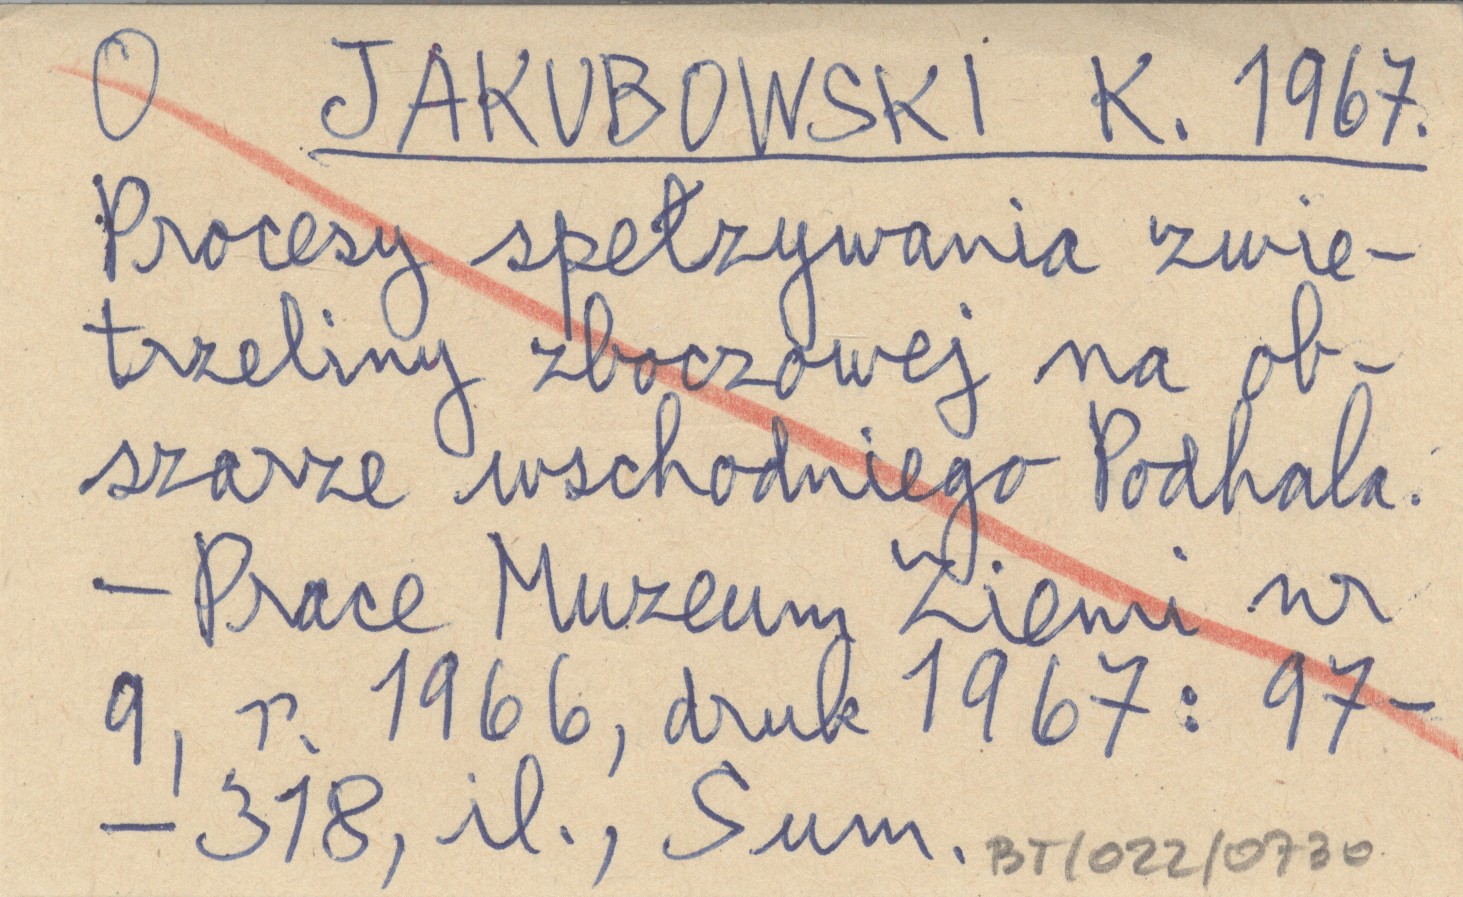 O JAKUBOWSKI K. 1967.
Procesy spełzywania zwie-
trzeliny zboczowej na ob-
szarze wschodniego Podhala.
– Prace Muzeum Ziemi nr
9, r. 1966, druk 1967: 97–
– 318, il., Sum.
BT/022/0730